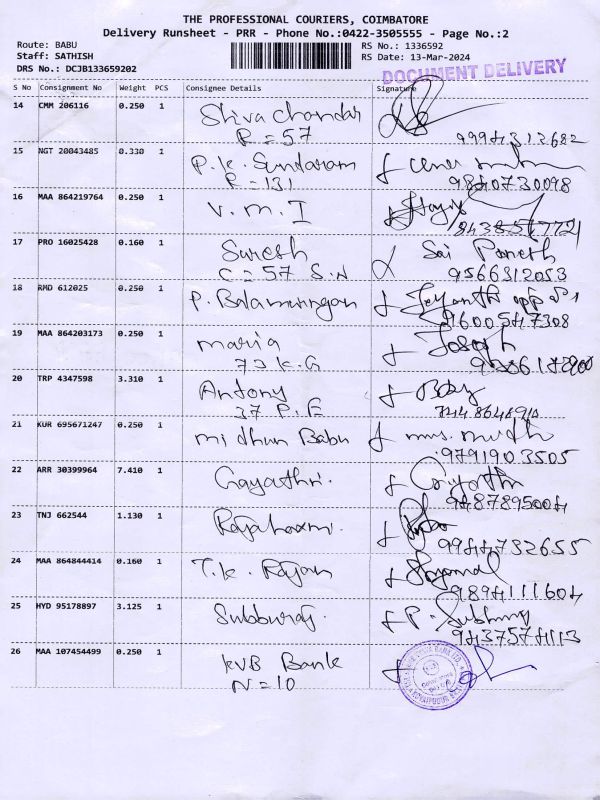 THE PROFESSIONAL COURIERS, COIMBATORE
Delivery Runsheet - PRR - Phone No.:0422-3505555 - Page No.:2
Route: BABU
Staff: SATHISH
DRS No.: DCJB133659202
RS No.: 1336592
RS Date: 13-Mar-2024
DOCUMENT DELIVERY
S No Consignment No Weight PCS Consignee Details Signature
14 CMM 206116 0.250 1 Shiva Chandar
R = 57 9994312682
15 NGT 20043485 0.330 1 P.K. Sundaram
R - 131 9840730098
16 MAA 864219764 0.250 1 V.M.I
17 PRO 16025428 0.160 1 Suresh Sai
C = 57 S.N 9566312053
18 RMD 612025 0.250 1 P. Balamurugan
9600547308
19 MAA 864203173 0.250 1 maria Joseph
73 K.G
20 TRP 4347598 3.310 1 Antony
37 P.E
21 KUR 695671247 0.250 1 midhun Babu
9791903505
22 ARR 30399964 7.410 1 Gayathri. Gayathri
9487895004
23 TNJ 662544 1.130 1 Rajalaxmi.
9944732655
24 MAA 864844414 0.160 1 T.K. Rajan
9894111604
25 HYD 95178897 3.125 1 Subburaj.
26 MAA 107454499 0.250 1 KVB Bank
N = 10